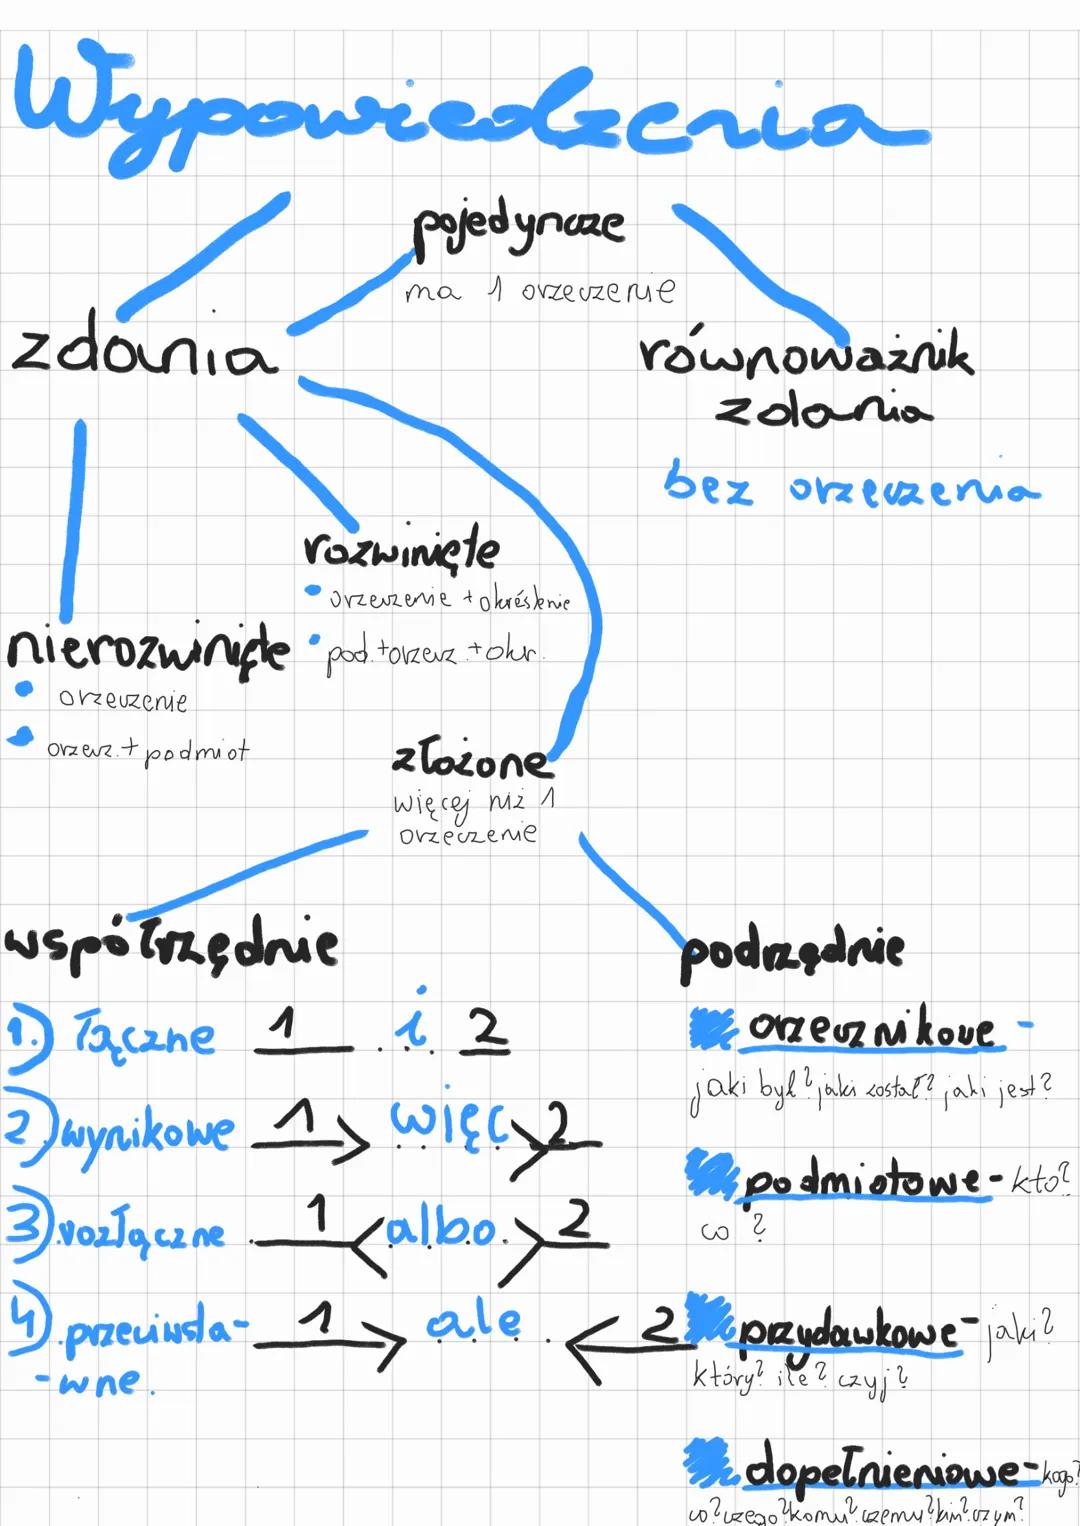 Wypowiedzenia
pojedyncze
ma 1 orzeczenie
zdania
równoważnik
zdania
bez orzeczenia
rozwinięte
• orzeczenie + określenie
• pod.+orzecz.+okr.
nierozwinięte
• orzeczenie
• orzecz.+podmiot
złożone
więcej niż 1
orzeczenie
współrzędnie
1.) łączne 1 . i . 2
2) wynikowe 1 > .więc. > 2
3) rozłączne 1 < albo. > 2
4) przeciwsta-
-wne.
1 > ale . < 2
podrzędnie
orzecznikowe -
jaki był? jaki został? jaki jest?
podmiotowe - kto?
co ?
przydawkowe - jaki?
który? ile? czyj?
dopełnieniowe - kogo?
co? czego? komu? czemu? kim? czym?